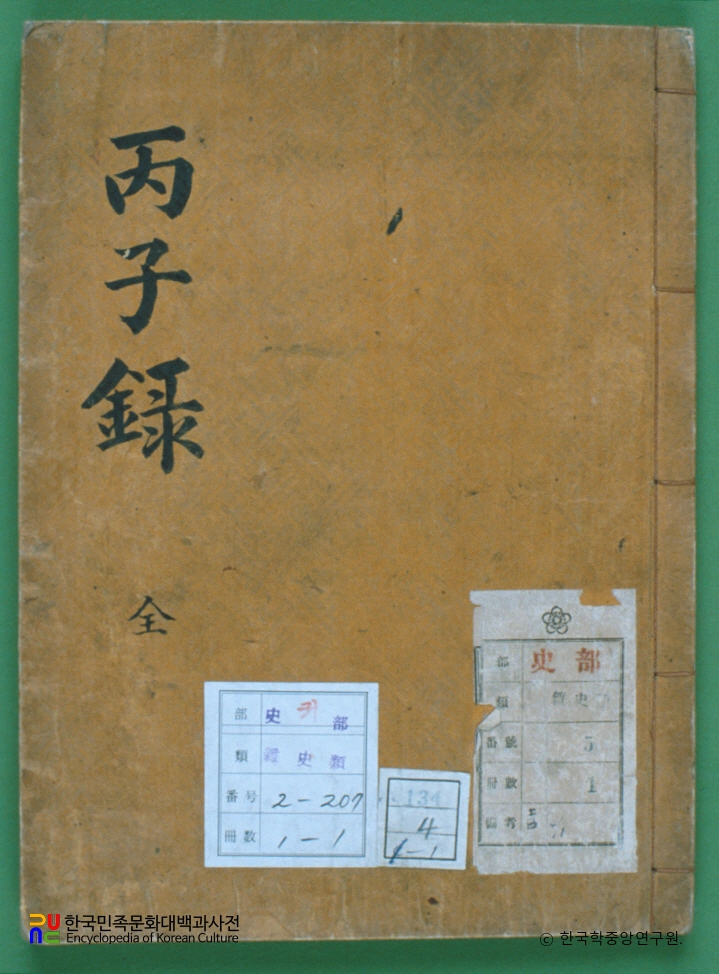 丙子錄
全
部 史 部
類 雜史類
番号 2-207
冊数 1-1
134
4
1-1
部 史部
類 雜史
番號 5
冊數 1
備考
한국민족문화대백과사전
Encyclopedia of Korean Culture
© 한국학중앙연구원.